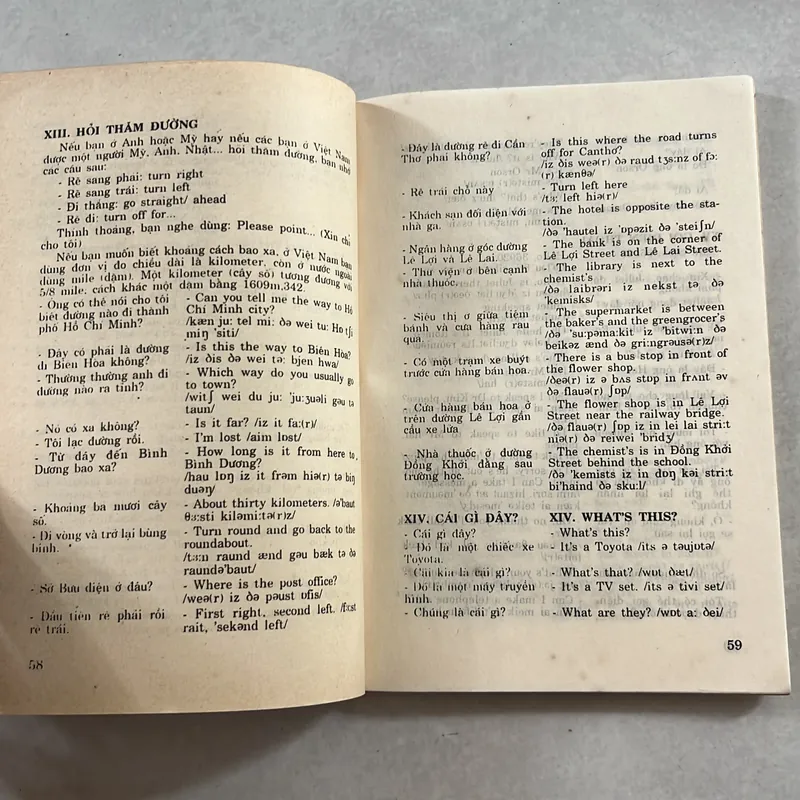 XIII. HỎI THĂM ĐƯỜNG
Nếu bạn ở Anh hoặc Mỹ hay nếu các bạn ở Việt Nam
được một người Mỹ, Anh, Nhật... hỏi thăm đường, bạn nhớ
các câu sau:
- Rẽ sang phải: turn right
- Rẽ sang trái: turn left
- Đi thẳng: go straight/ ahead
- Rẽ đi: turn off for...
Thỉnh thoảng, bạn nghe dùng: Please point... (Xin chỉ
cho tôi)
Nếu bạn muốn biết khoảng cách bao xa, ở Việt Nam bạn
dùng đơn vị đo chiều dài là kilometer, còn ở nước ngoài
dùng mile (dặm). Một kilometer (cây số) tương đương với
5/8 mile, cách khác một dặm bằng 1609m,342.
- Ông có thể nói cho tôi
biết đường nào đi thành
phố Hồ Chí Minh?
- Can you tell me the way to Hồ
Chí Minh city?
/kæn ju: tel mi: ðə wei tu: Ho tʃi
miŋ 'siti/
- Đây có phải là đường
đi Biên Hòa không?
- Is this the way to Biên Hòa?
/iz ðis ðə wei tə: bjen hwa/
- Thường thường anh đi
đường nào ra tỉnh?
- Which way do you usually go
to town?
/witʃ wei du ju: 'ju:ʒuəli gəu tə
taun/
- Nó có xa không?
- Is it far? /iz it fa:(r)/
- Tôi lạc đường rồi.
- I'm lost /aim lost/
- Từ đây đến Bình
Dương bao xa?
- How long is it from here to
Bình Dương?
/hau lɒŋ iz it frəm hiə(r) tə biŋ
duəŋ/
- Khoảng ba mươi cây
số.
- About thirty kilometers. /ə'baut
θɜ:sti kiləmi:tə(r)z/
- Đi vòng và trở lại bùng
binh.
- Turn round and go back to the
roundabout.
/tɜ:n raund ænd gəu bæk tə ðə
raundə'baut/
- Sở Bưu điện ở đâu?
- Where is the post office?
/weə(r) iz ðə pəust ɒfis/
- Đầu tiên rẽ phải rồi
rẽ trái.
- First right, second left. /fɜ:st
rait, 'sekənd left/
58
- Đây là đường rẽ đi Cần
Thơ phải không?
- Is this where the road turns
off for Canthơ?
/iz ðis weə(r) ðə raud tʒs:nz of fɔ:
(r) kænθə/
- Rẽ trái chỗ này
- Turn left here
/tɜ: left hiə(r)/
- Khách sạn đối diện với
nhà ga.
- The hotel is opposite the sta-
tion.
/ðə 'hautel iz 'ɒpəzit ðə 'steiʃn/
- Ngân hàng ở góc đường
Lê Lợi và Lê Lai.
- The bank is on the corner of
Lê Lợi Street and Lê Lai Street.
- Thư viện ở bên cạnh
nhà thuốc.
- The library is next to the
chemist's
/ðə laibrəri iz nekst tə ðə
'kemisks/
- Siêu thị ở giữa tiệm
bánh và cửa hàng rau
quả.
- The supermarket is between
the baker's and the greengrocer's
/ðə 'su:pəma:kit iz 'bitwi:n ðə
beikəz ænd ðə gri:ngrəusə(r)z/
- Có một trạm xe buýt
trước cửa hàng bán hoa.
- There is a bus stop in front of
the flower shop.
/ðeə(r) iz ə bʌs stɒp in frʌnt əv
ðə flauə(r) ʃɒp/
- Cửa hàng bán hoa ở
trên đường Lê Lợi gần
cầu xe lửa
- The flower shop is in Lê Lợi
Street near the railway bridge.
/ðə flauə(r) ʃɒp iz in lei lai stri:t
niə(r) ðə reiwei 'bridʒ/
- Nhà thuốc ở đường
Đồng Khởi đằng sau
trường học.
- The chemist's is in Đồng Khởi
Street behind the school.
/ðə 'kemists iz in dɒŋ kəi stri:t
bi'haind ðə sku:l/
XIV. CÁI GÌ ĐÂY?
XIV. WHAT'S THIS?
- Cái gì đây?
- What's this?
- Đó là một chiếc xe
Toyota.
- It's a Toyota /its ə təujɒtə/
- Cái kia là cái gì?
- What's that? /wɒt ðæt/
- Đó là một máy truyền
hình.
- It's a TV set. /its ə tivi set/
- Chúng là cái gì?
- What are they? /wɒt a: ðei/
59